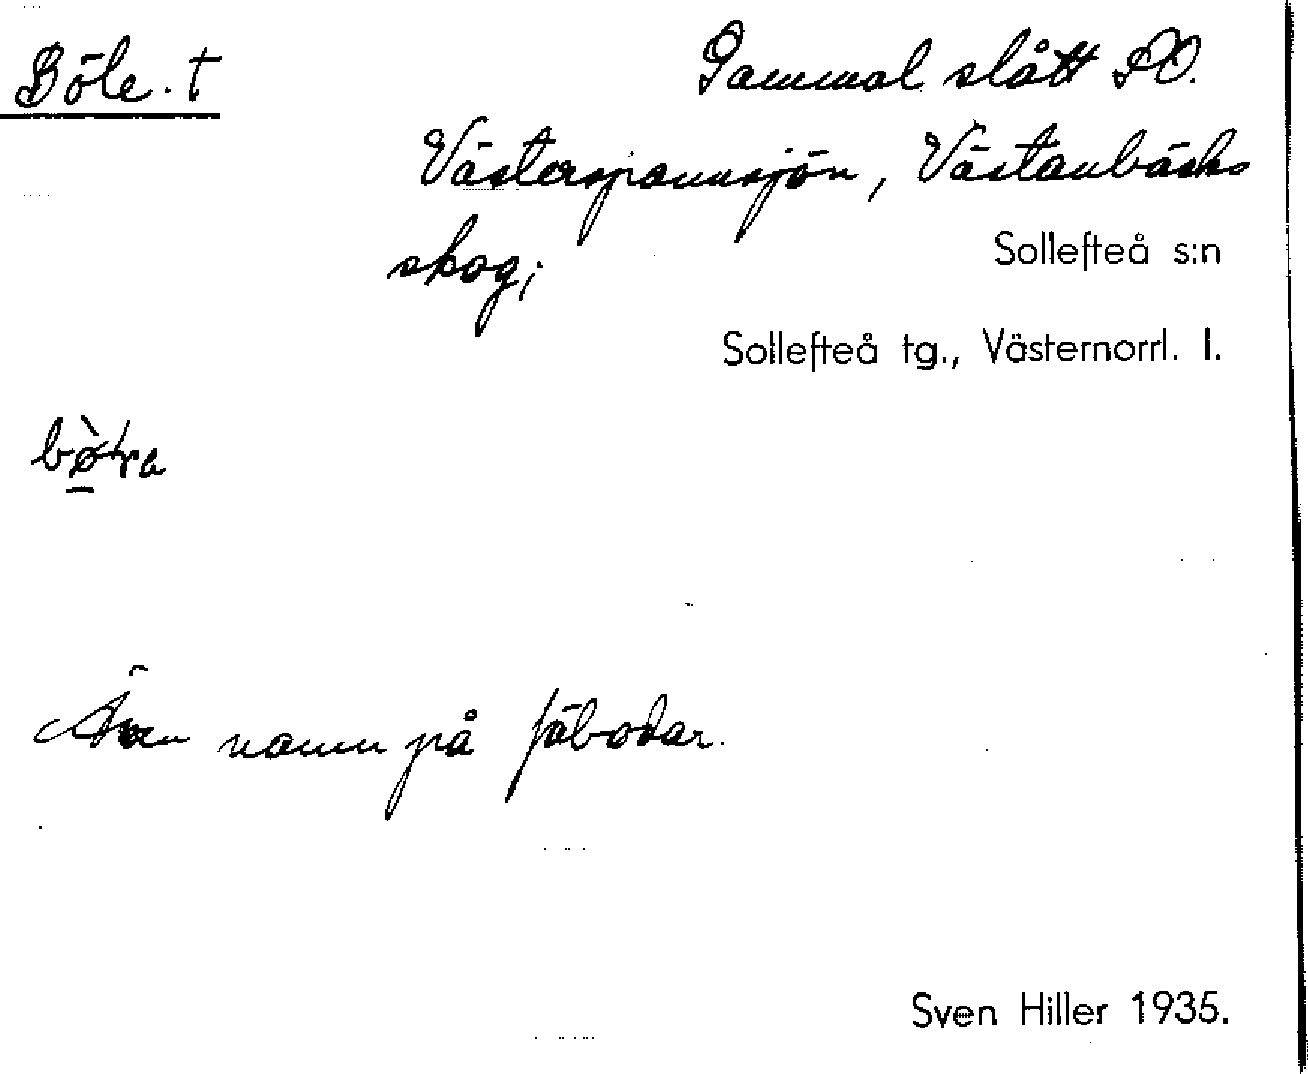 Böle. †
Gammal slått SO.
Västerspannsjön, Västanbäcks
skog;
Sollefteå s:n
Sollefteå tg., Västernorrl. l.
Även namn på fäbodar.
Sven Hiller 1935.